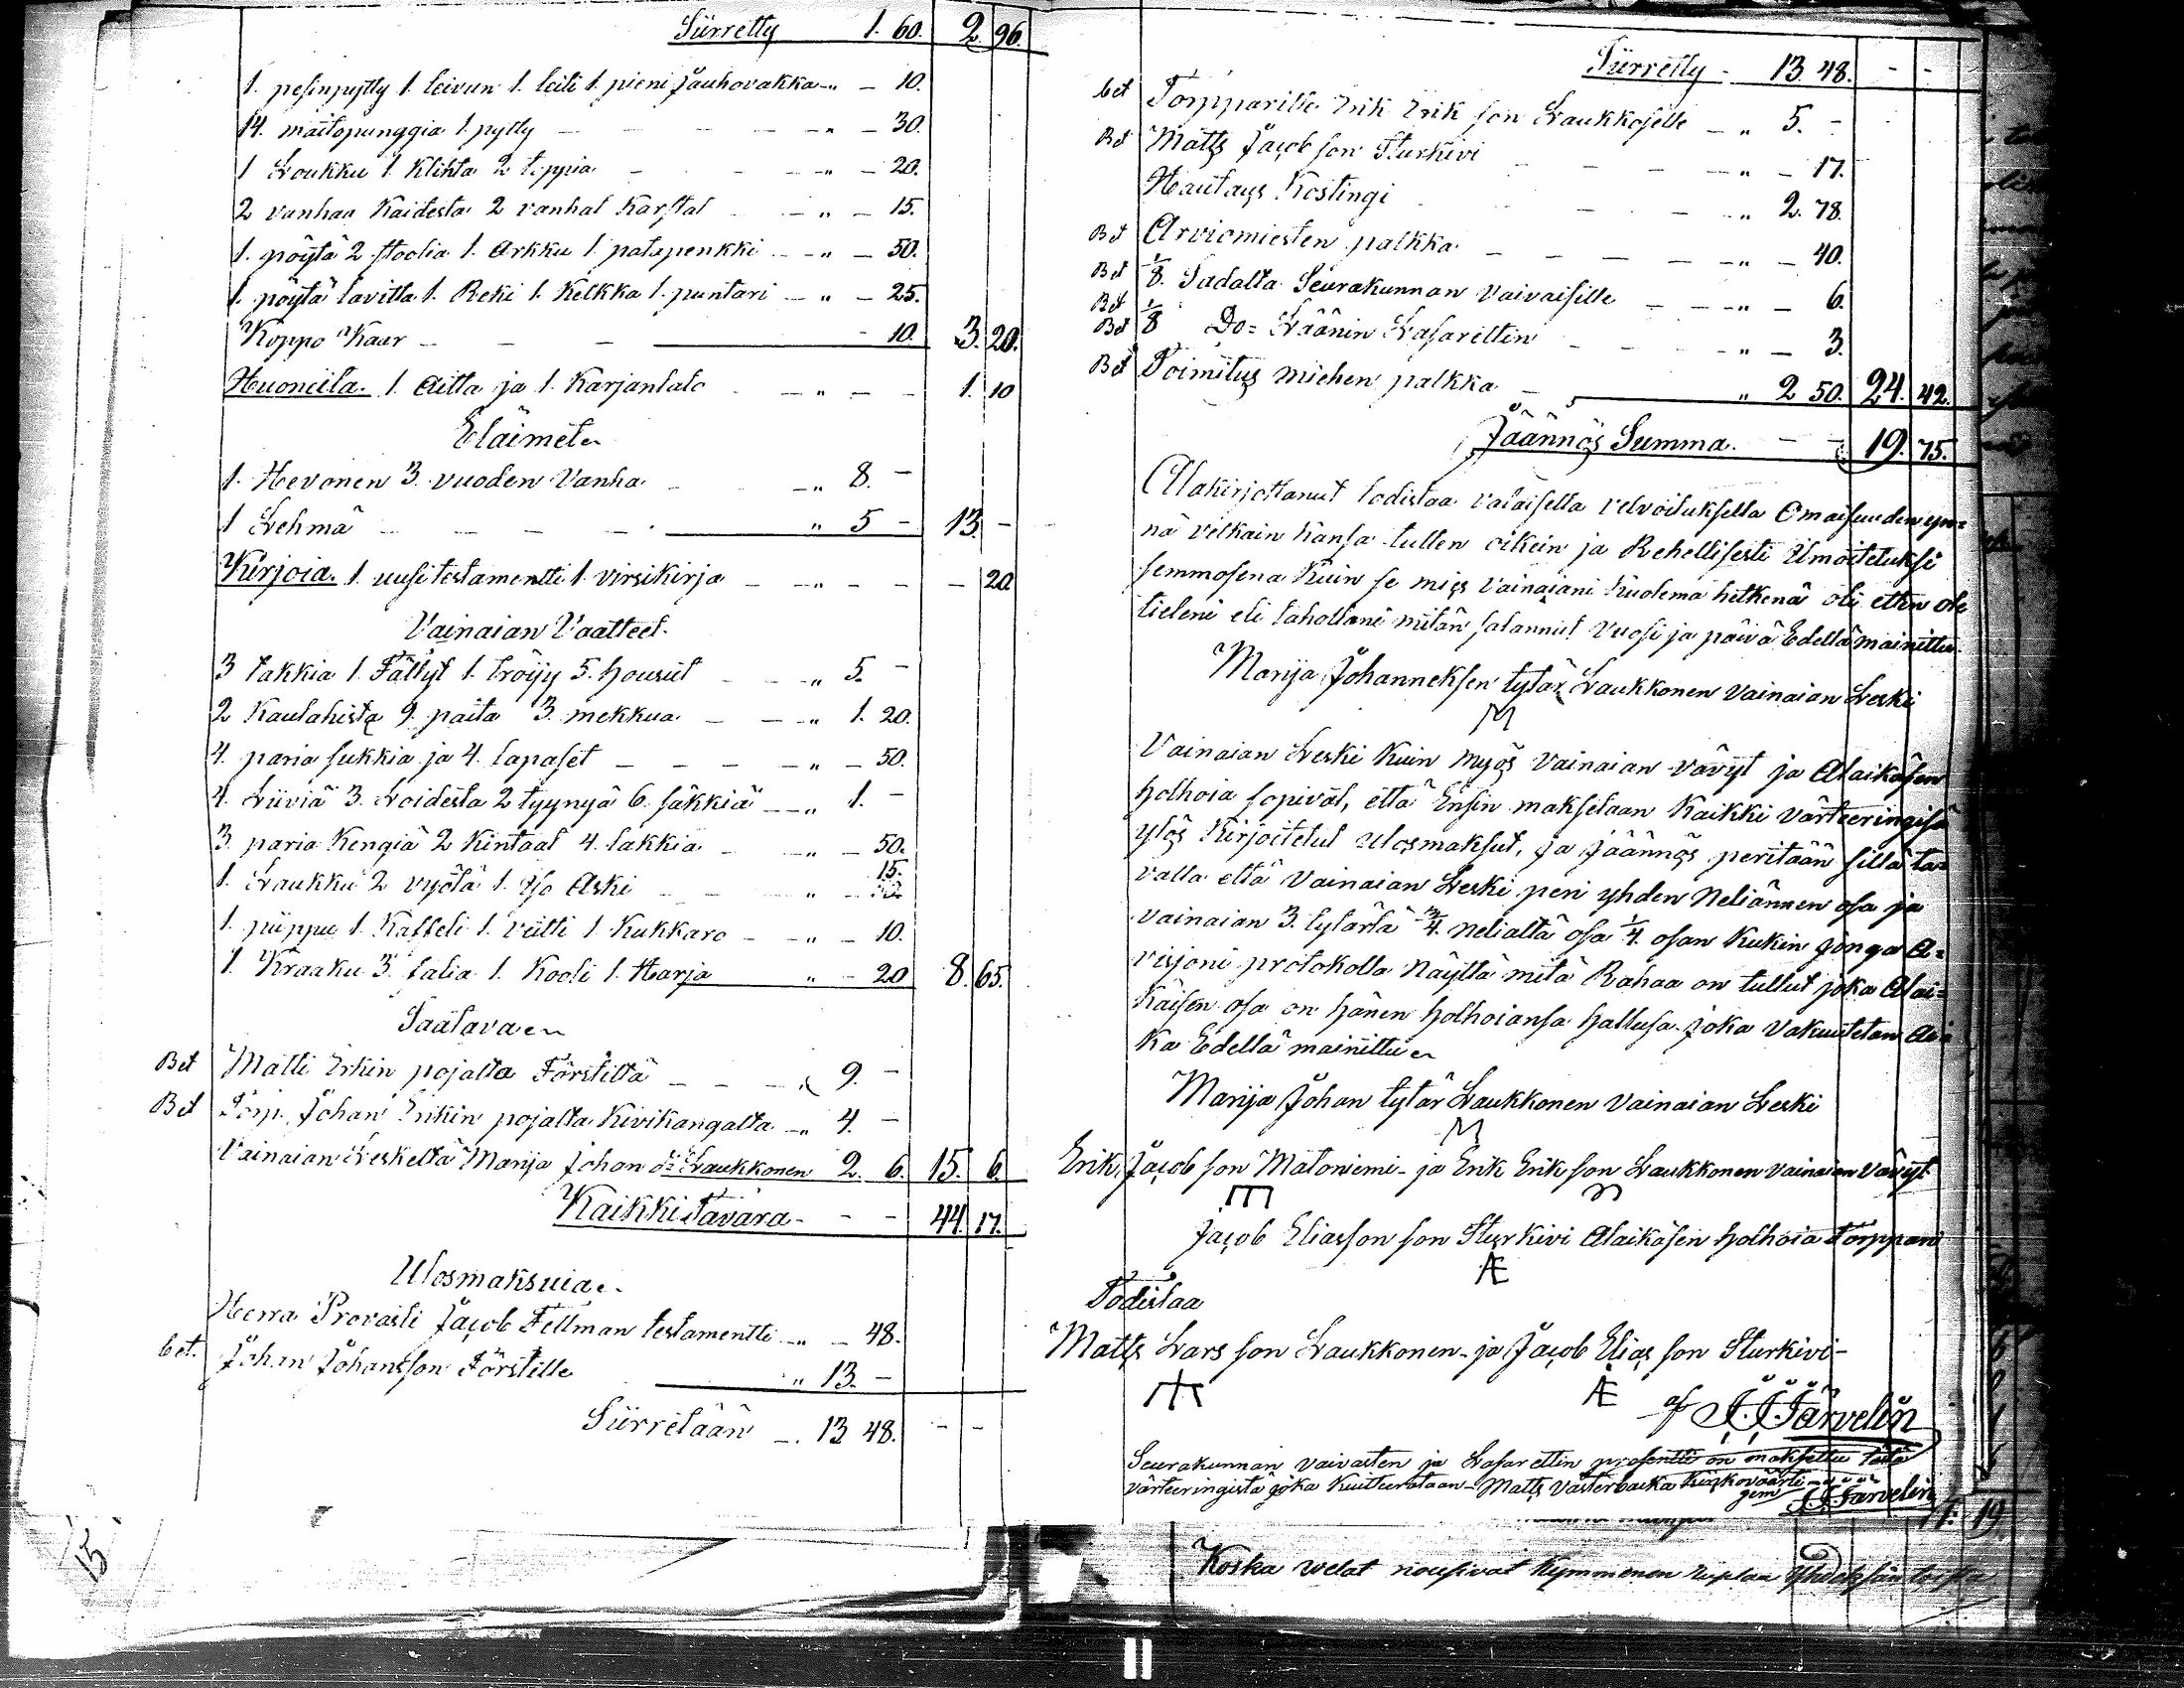 Siirretty 1. 60. 2. 96.
1. pesinpytty 1. leivun 1. leili 1. pieni Jauhovakka -„- 10.
14. maitopunggia 1. pytty -„- 30.
1 Loukku 1. Klihta 2 toppia -„- 20.
2 vanhaa Kaidesta 2 vanhat Karstat -„- 15.
1. pöytä 2 stoolia 1. Arkku 1. patapenkki -„- 50.
1. pöytä lavitta 1. Reki 1. Kelkka 1. puntari -„- 25.
Koppo Kaar - 10. 3. 20.
Huoneita. 1. Aitta ja 1. Karjantalo -„- 1. 10
Eläimet
1. Hevonen 3. vuoden Vanha -„ 8. -
1 Lehmä „ 5 - 13. -
Kirjoia. 1. uusi testamentti 1. virsikirja -„- - 20.
Vainaian Vaatteet.
3 takkia 1. Fällyt 1. tröijy 5. housut -„ 5. -
2 Kaulahista 9. paita 3. mekkua -„ 1. 20.
4. paria sukkia ja 4. lapaset -„- 50.
4. Liiviä 3. Loidesta 2 tyynyä 6. säkkiä -„ 1. -
3. paria Kengiä 2 Kintaat 4. lakkia -„- 50.
1. Laukku 2 vyötä 1. Iso Aski „- 15.
1. piippu 1. Kaffeli 1. veitti 1 Kukkaro -„- 10.
1. Kraaku 3. salia 1. Kooli 1. Harja „- 20 8. 65.
Saatava
Bet Matti Erkin pojalta Förstiltä 9. -
Bet Torp. Johan Erikin pojalta Kivikangalta -„ 4. -
Vainaian Leskeltä Marija Johan dr Laukkonen 2. 6. 15. 6.
Kaikki tavara - - - 44. 17.
Ulosmaksuia
Herra Provasti Jacob Fellman testamentti -„- 48.
bet. Johan Johansson Förstille „ 13. -
Siirretään -. 13 48. - -
15
Siirretty - 13. 48. - -
bet Torpparille Erik Erik son Laukkoselle -„ 5. -
Bet Matts Jacob son Sturkivi -„- 17.
Hautaus Kostingi „ 2. 78.
Bet Arviomiesten palkka -„- 40.
Bet 1/8. Sadalta Seurakunnan Vaivaisille -„- 6.
Bet 1/8 Do= Läänin Lasarettin „- 3.
Bet Toimitus miehen palkka „ 2 50. 24. 42.
Jäännös Summa. - - 19. 75.
Alakirjottanut todistaa valaisella velvoituksella Omaisuuden yn=
nä velkain kansa tullen oikein ja Rehellisesti Ilmoitetuksi
semmosena Kuin se mies Vainaiani Kuolema hetkenä oli etten ole
tieteni eli tahollani mitän salannut Vuosi ja päivä Edellämainittu.
Marija Johanneksen tytär Laukkonen Vainaian Leski
M
Vainaian Leski Kuin myös Vainaian vävyt ja Alaikäsen
holhoia sopivat, että Ensin maksetaan Kaikki värteeringisä
ylös Kirjoitetut Ulosmaksut, ja jäännös peritään sillä ta=
valla että Vainaian Leski peri yhden Neliännen osa ja
vainaian 3. tytärtä 3/4. neliattä osa 1/4. osan Kukin jonga A=
visjoni protokolla Näyttä mitä Rahaa on tullut joka Alai=
käisen osa on hänen holhoiansa hallusa. joka Vakuutetan Ai=
ka Edellä mainittu
Marija Johan tytär Laukkonen Vainaian Leski
M
Erik Jacob son Matoniemi - ja Erik Erik son Laukkonen vainaian Vävyt
Jacob Eliasson son Sturkivi Alaikäsen holhoia Torppari
Æ
Todistaa
Matts Lars son Laukkonen - ja Jacob Elias son Sturkivi -
Æ
af J. J. Järvelin
Seurakunnan vaivasten ja Lasarettin prosentti on maksettu tästä
värteeringistä joka Kuitteerataan - Matts Västerbacka Kirkovöärti
gem J. J. Järvelin
11. 19
Koska welat nousivat Kymmenen ruplaa Yhdeksäntoista